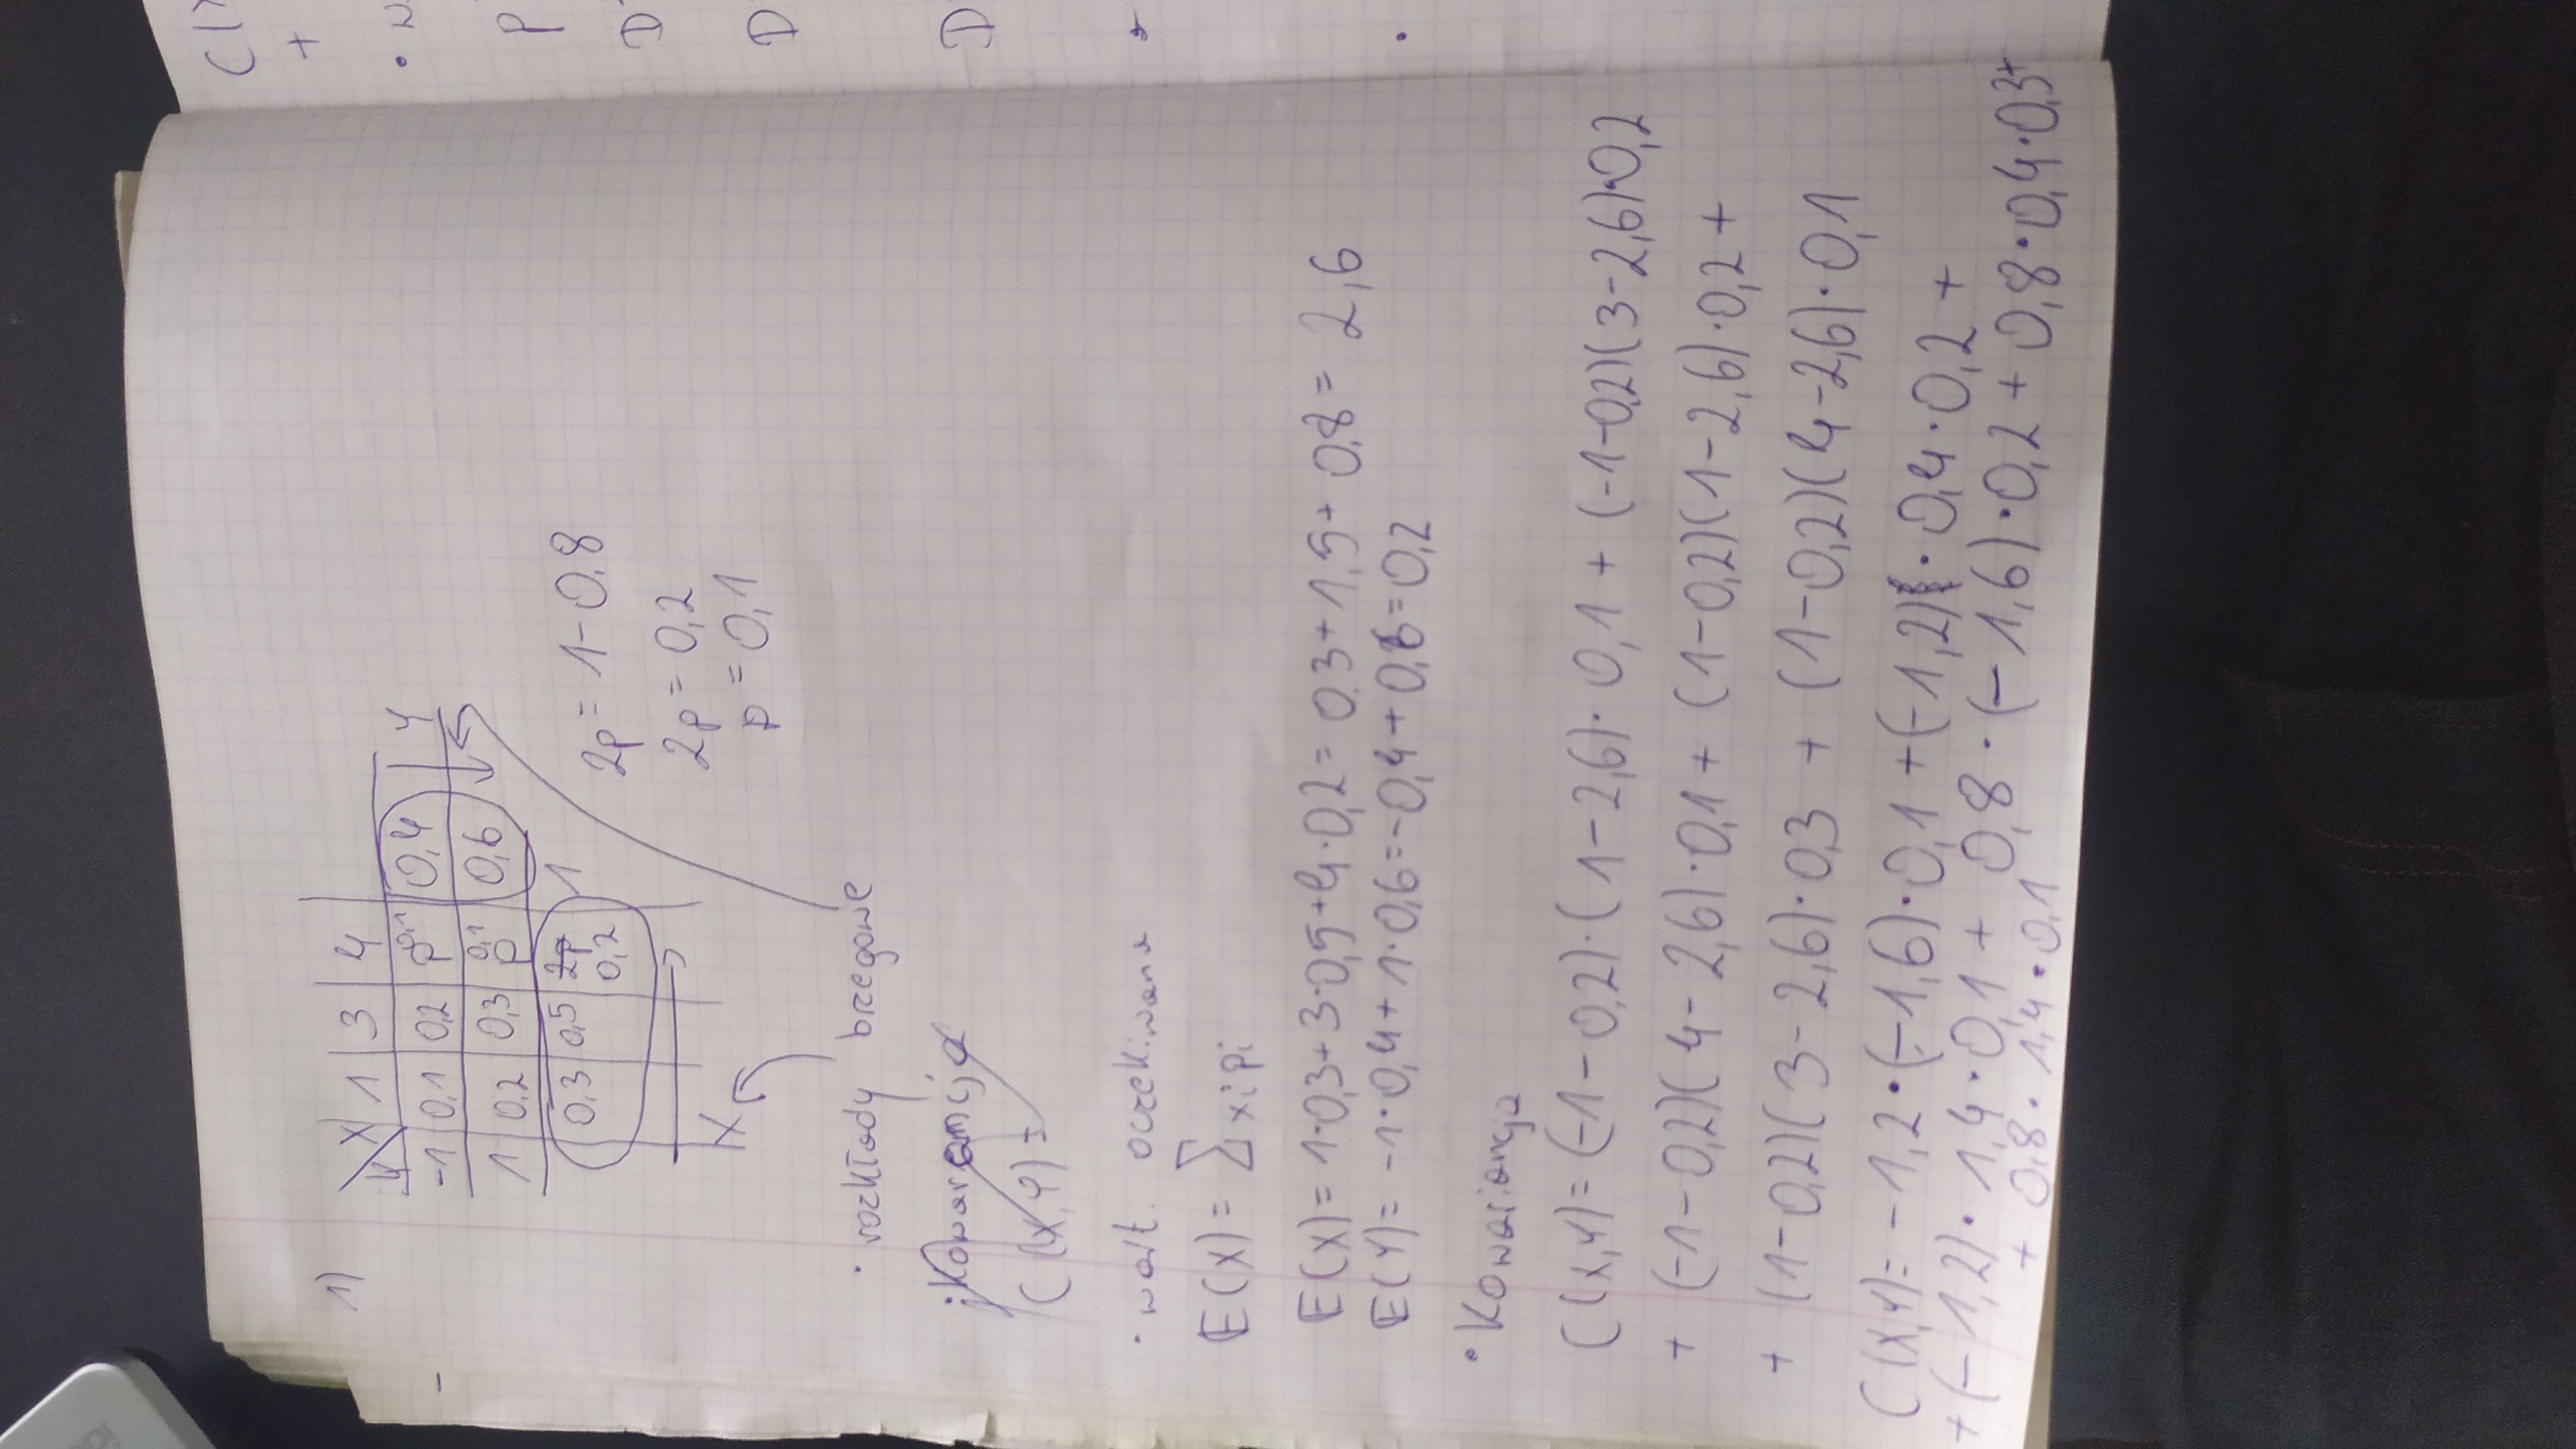 1)
Y X 1 3 4
-1 0,1 0,2 p 0,1 0,4 Y
1 0,2 0,3 p 0,1 0,6
0,3 0,5 2p 1
0,2
X
2p = 1-0,8
2p = 0,2
p = 0,1
• rozkłady brzegowe
• Kowaramcja
C(X,Y)=
• wart. oczekiwana
E(X)= Σ xi pi
E(X)= 1·0,3+3·0,5+4·0,2= 0,3+1,5+0,8= 2,6
E(Y)= -1·0,4+1·0,6=-0,4+0,6=0,2
• Kowariancja
C(X,Y)= (-1-0,2)·(1-2,6)·0,1 + (-1-0,2)(3-2,6)·0,2
+ (-1-0,2)(4-2,6)·0,1+ (1-0,2)(1-2,6)·0,2+
+ (1-0,2)(3-2,6)·0,3 + (1-0,2)(4-2,6)·0,1
C(X,Y)= -1,2·(-1,6)·0,1 +(-1,2)·0,4·0,2 +
+(-1,2)·1,4·0,1+ 0,8·(-1,6)·0,2+0,8·0,4·0,3+
+ 0,8·1,4·0,1
C(X
+
• w
P
D
D
D
•